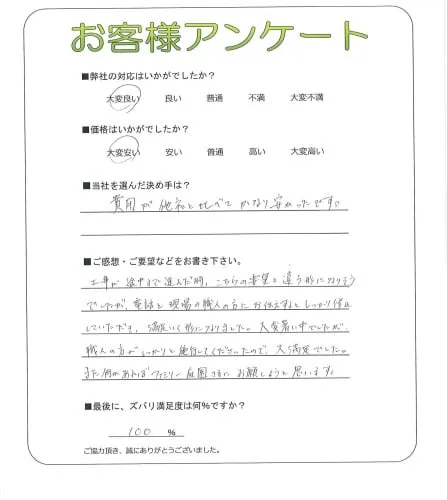 お客様アンケート
■弊社の対応はいかがでしたか？
大変良い 良い 普通 不満 大変不満
■価格はいかがでしたか？
大変安い 安い 普通 高い 大変高い
■当社を選んだ決め手は？
費用が他社と比べてかなり安かったです。
■ご感想・ご要望などをお書き下さい。
工事が途中まで進んだ時、こちらの希望と違う形になりそう
でしたが、電話と現場の職人の方にお伝えするとしっかり修正
していただき、満足いく形になりました。大変暑い中でしたが、
職人の方がしっかりと施行してくださったので、大満足でした。
また何かあればファミリー庭園さまにお願しようと思います。
■最後に、ズバリ満足度は何%ですか？
100 %
ご協力頂き、誠にありがとうございました。